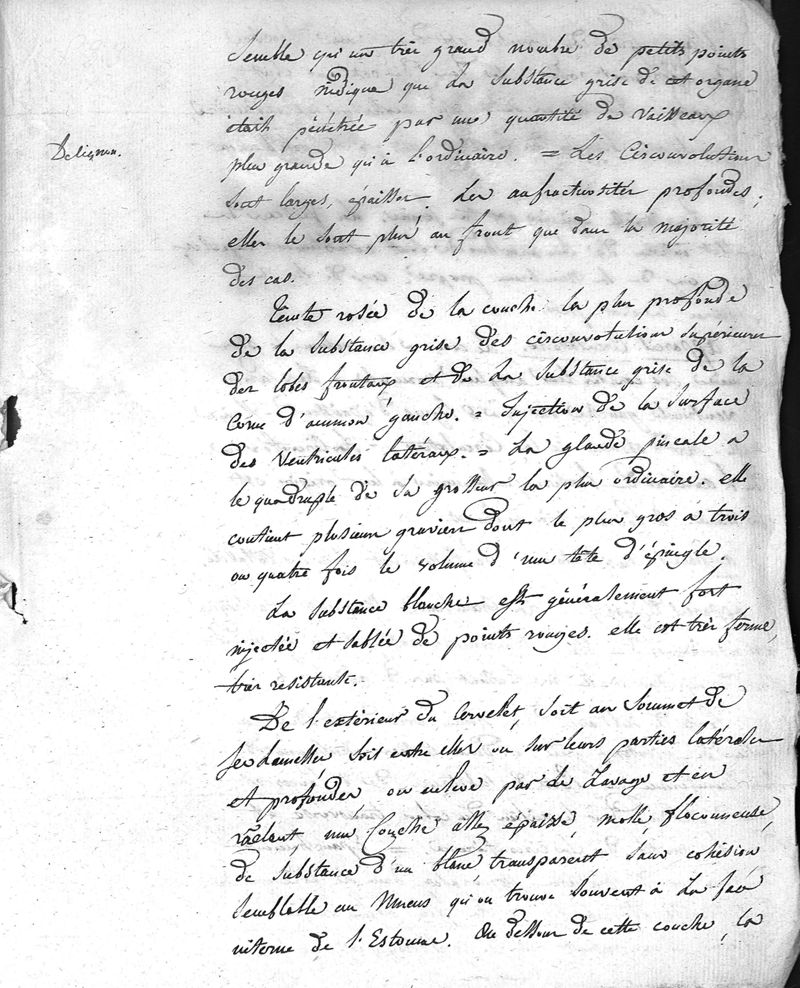 Semble qu'un très grand nombre de petits points
rouges indique que la substance grise de cet organe
était pénétrée par une quantité de vaisseaux
Delignon.
plus grande qu'à l'ordinaire. = Les Circonvolutions
sont larges, épaisses. Les anfractuosités profondes;
elles le sont plus au front que dans la majorité
des cas.
teinte rosée de la couche la plus profonde
de la substance grise des circonvolutions supérieures
des lobes frontaux et de la substance grise de la
Corne d'ammon gauche. = Injection de la surface
des Ventricules latéraux. = La glande pinéale a
le quadruple de sa grosseur la plus ordinaire. elle
contient plusieurs graviers dont le plus gros a trois
ou quatre fois le volume d'une tête d'épingle.
La substance blanche est généralement fort
injectée et sablée de points rouges. elle est très ferme,
très resistante.
De l'extérieur du Cervelet, soit au Sommet de
ses lamelles soit entre elles ou sur leurs parties latérales
et profondes on enlève par le Lavage et en
râclant, une Couche assez épaisse, molle, floconneuse,
de substance d'un blanc transparent sans cohésion
semblable au Mucus qu'on trouve souvent à la face
interne de l'Estomac. Au dessous de cette couche, la